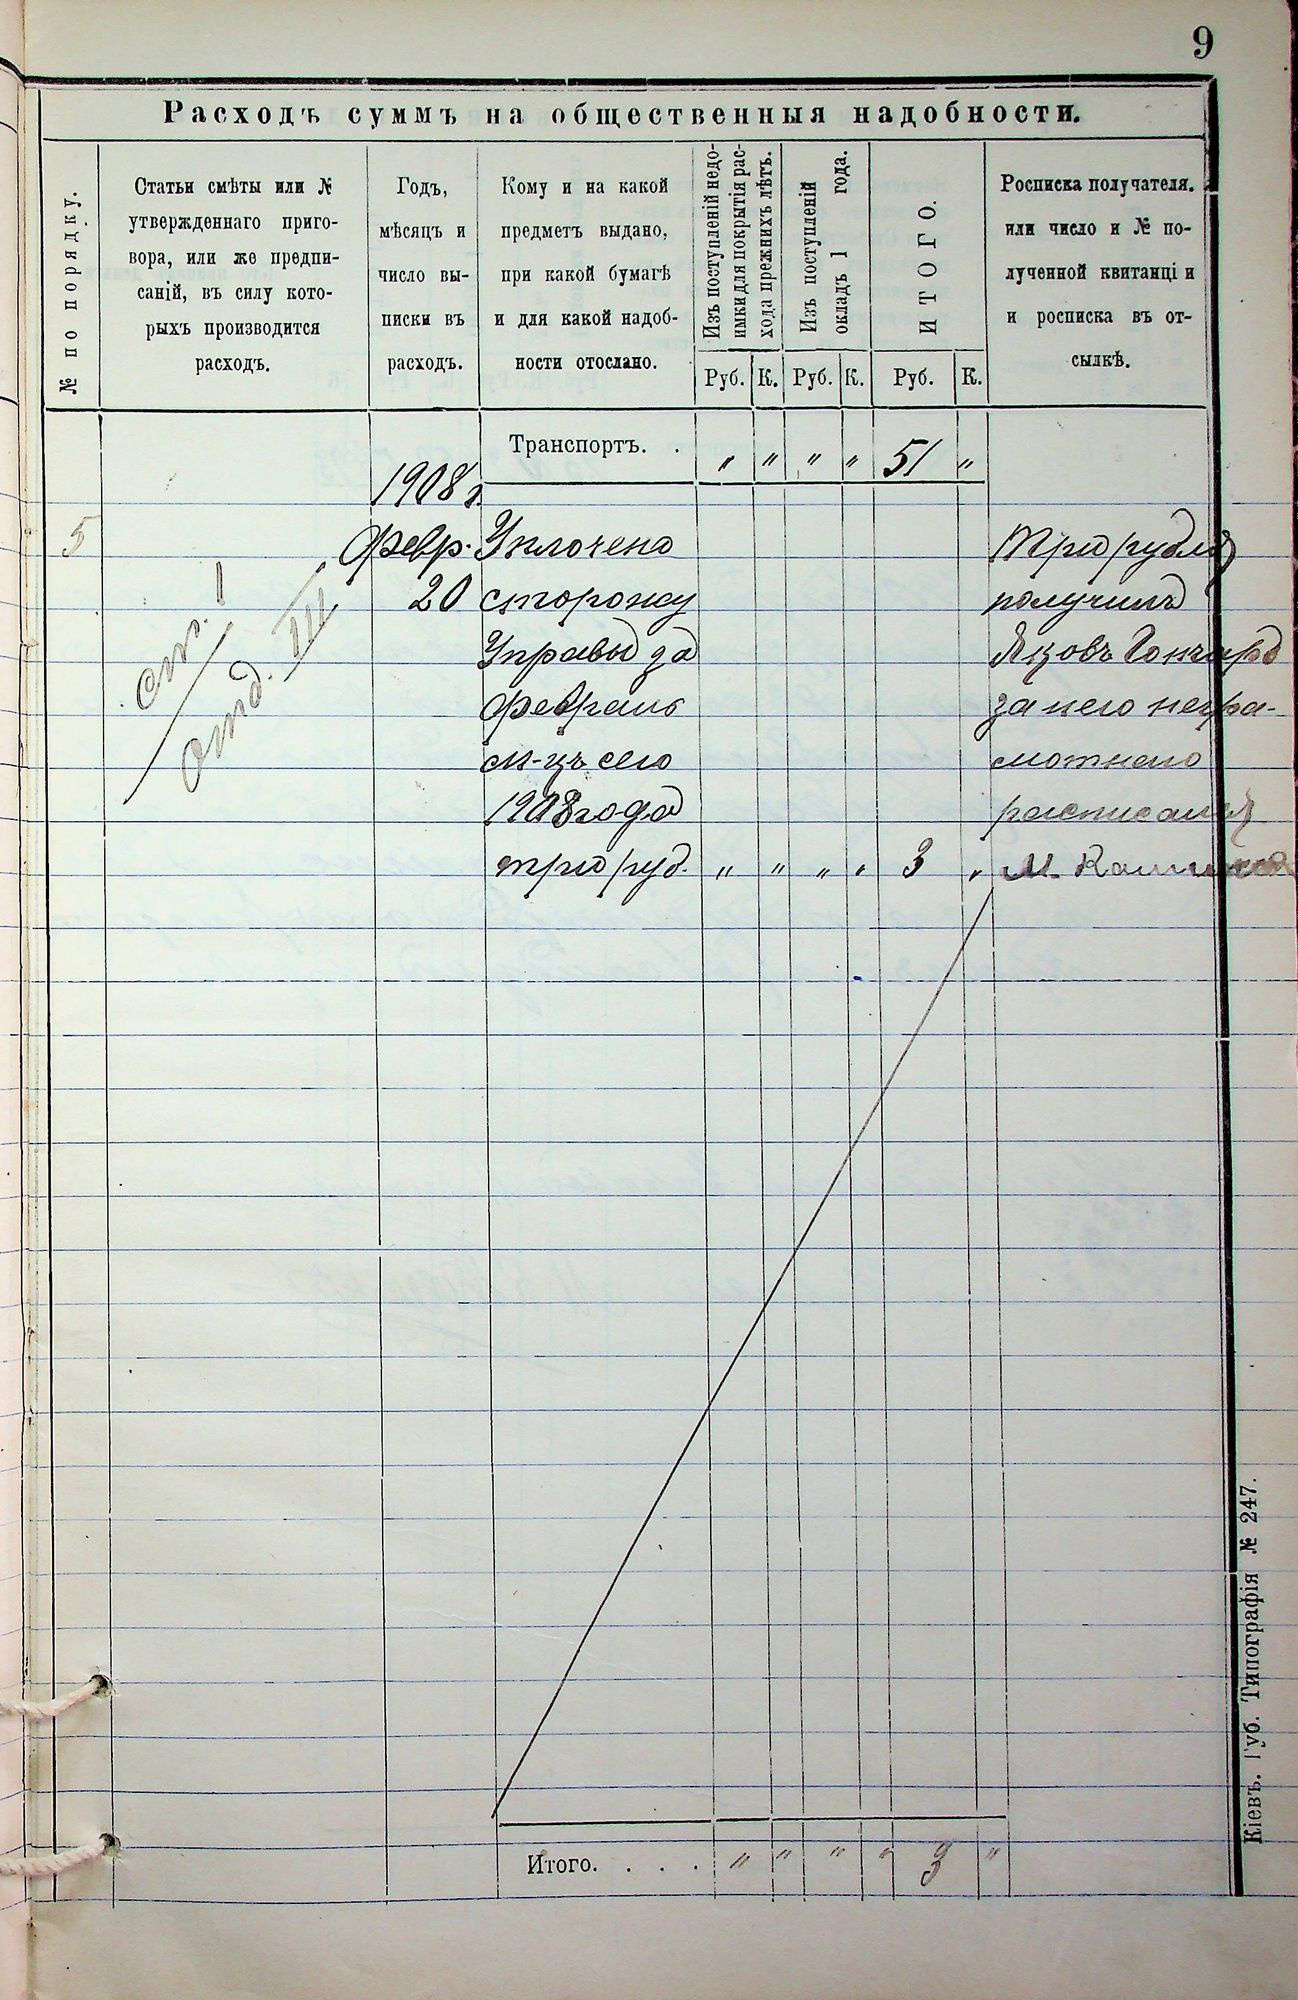 9
Расходъ суммъ на общественныя надобности.
№ по порядку.
Статьи смѣты или №
утвержденнаго приго-
вора, или же предпи-
саній, въ силу кото-
рыхъ производится
расходъ.
Годъ,
мѣсяцъ и
число вы-
писки въ
расходъ.
Кому и на какой
предметъ выдано,
при какой бумагѣ
и для какой надоб-
ности отослано.
Изъ поступленій недо-
имки для покрытія рас-
хода прежнихъ лѣтъ.
Изъ поступленій
окладъ 1 года.
ИТОГО.
Росписка получателя.
или число и № по-
лученной квитанці и
и росписка въ от-
сылкѣ.
Руб. К. Руб. К. Руб. К.
Транспортъ. . „ „ „ „ 51 „
1908 г.
5 февр. Уплочено
20 сторожу
Управы за
февраль
м-цъ сего
1908 года
три руб. „ „ „ „ 3 „
ст. 1
отд. III
Три рубля
получилъ
Яковъ Гончаръ
за него негра-
мотнаго
росписался
М.
Итого. . . . „ „ „ „ 3 „
Кіевъ. Губ. Типографія № 247.